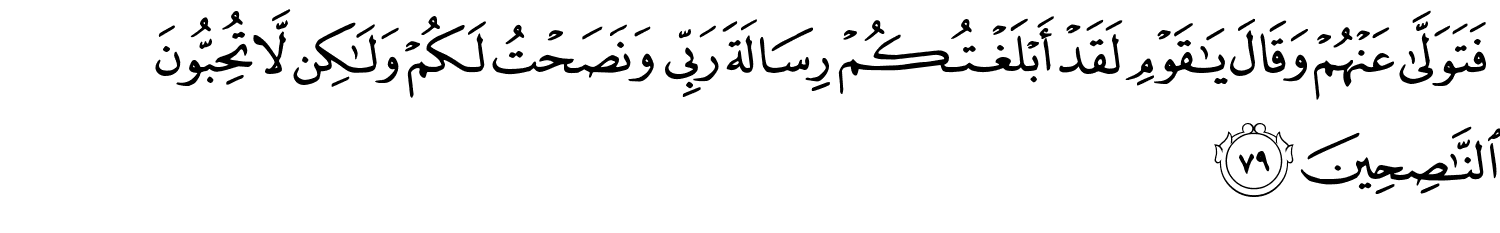 فَتَوَلَّىٰ عَنْهُمْ وَقَالَ يَـٰقَوْمِ لَقَدْ أَبْلَغْتُكُمْ رِسَالَةَ رَبِّى وَنَصَحْتُ لَكُمْ وَلَـٰكِن لَّا تُحِبُّونَ
ٱلنَّـٰصِحِينَ ٧٩